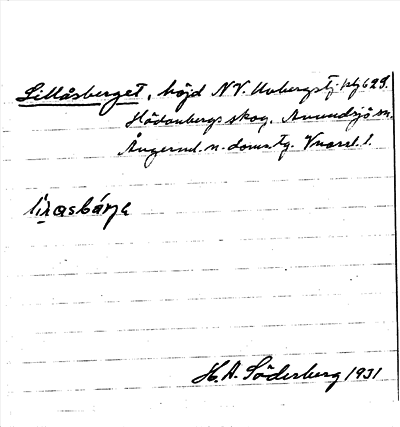 Lillåsberget, höjd NV. Uvbergstj. plg 629.
Flädanbergs skog, Anundsjö sn.
Ångerml. n. doms.tg. Vnorrl. l.
H. A. Söderberg 1931